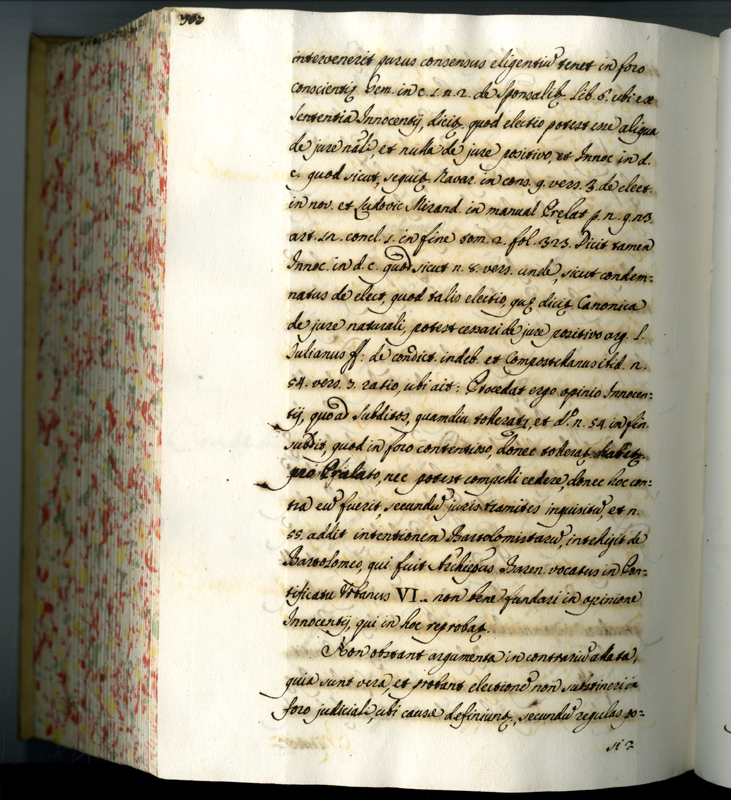 intervenerit purus consensus eligentiũ tenet in foro
conscientiȩ Gem. in c. 1. n. 2. de Sponsalib. lib. 6. ubi ex
sententia Innocentij, dicit, quod electio potest esse aliqua
de jure nãli, et nulla de jure positivo, et Innoc. in d.
c. quod sicut, sequit. Navar. in cons. 9. vers. 3. de elect.
in nov. et Ludovic. Mirand. in manual Prȩlat. p. n. q. 23.
art. 12. concl. 1. in fine tom. 2. fol. 323. Dicit tamen
Innoc. in d. c. quod sicut n. 8. vers. unde, sicut condem-
natus de elect. quod talis electio, quȩ dicit. Canonica
de jure naturali, potest cessari de jure positivo arg. l.
Julianus ff: de condict. indeb. et Compostellanus ibid. n.
54. vers. 3. ratio, ubi ait: Procedat ergo opinio Innocen-
tij, quoad subditos, quamdiu tolerat, et d.º n. 54. in fin.
subdit, quod in foro contentivo, donec tolerat, habet.
pro Prȩlato, nec potest compelli cedere, donec hoc con=
tra eũ fuerit, secundũ juris tramites inquisitũ, et n.
55. addit intentionem Bartolomistarũ, intelligit de
Bartolomeo, qui fuit Archiepũs Baren. vocatus in Pon=
tificatu Urbanus VI.. non bene fundari in opinione
Innocentij, qui in hoc reprobat.
Non obstant argumenta in contrariũ allata,
quia sunt vera, et probant electionẽ non substineri in
foro judiciali, ubi causæ definiunt, secundũ regulas po=